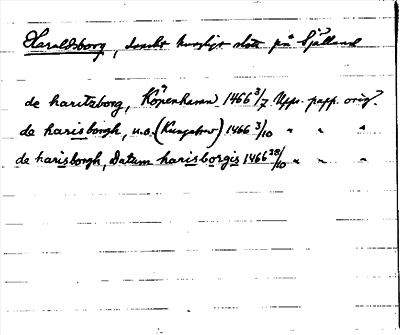 Haraldsborg, danskt kungligt slott på Själland
de haritzborg, Köpenhamn 1466 3/7 Upps. papp. orig.
de harisborgh, u.o. (Kungsbrev) 1466 3/10 " " "
de harisborgh, Datum harisborgis 1466 28/10 " " "